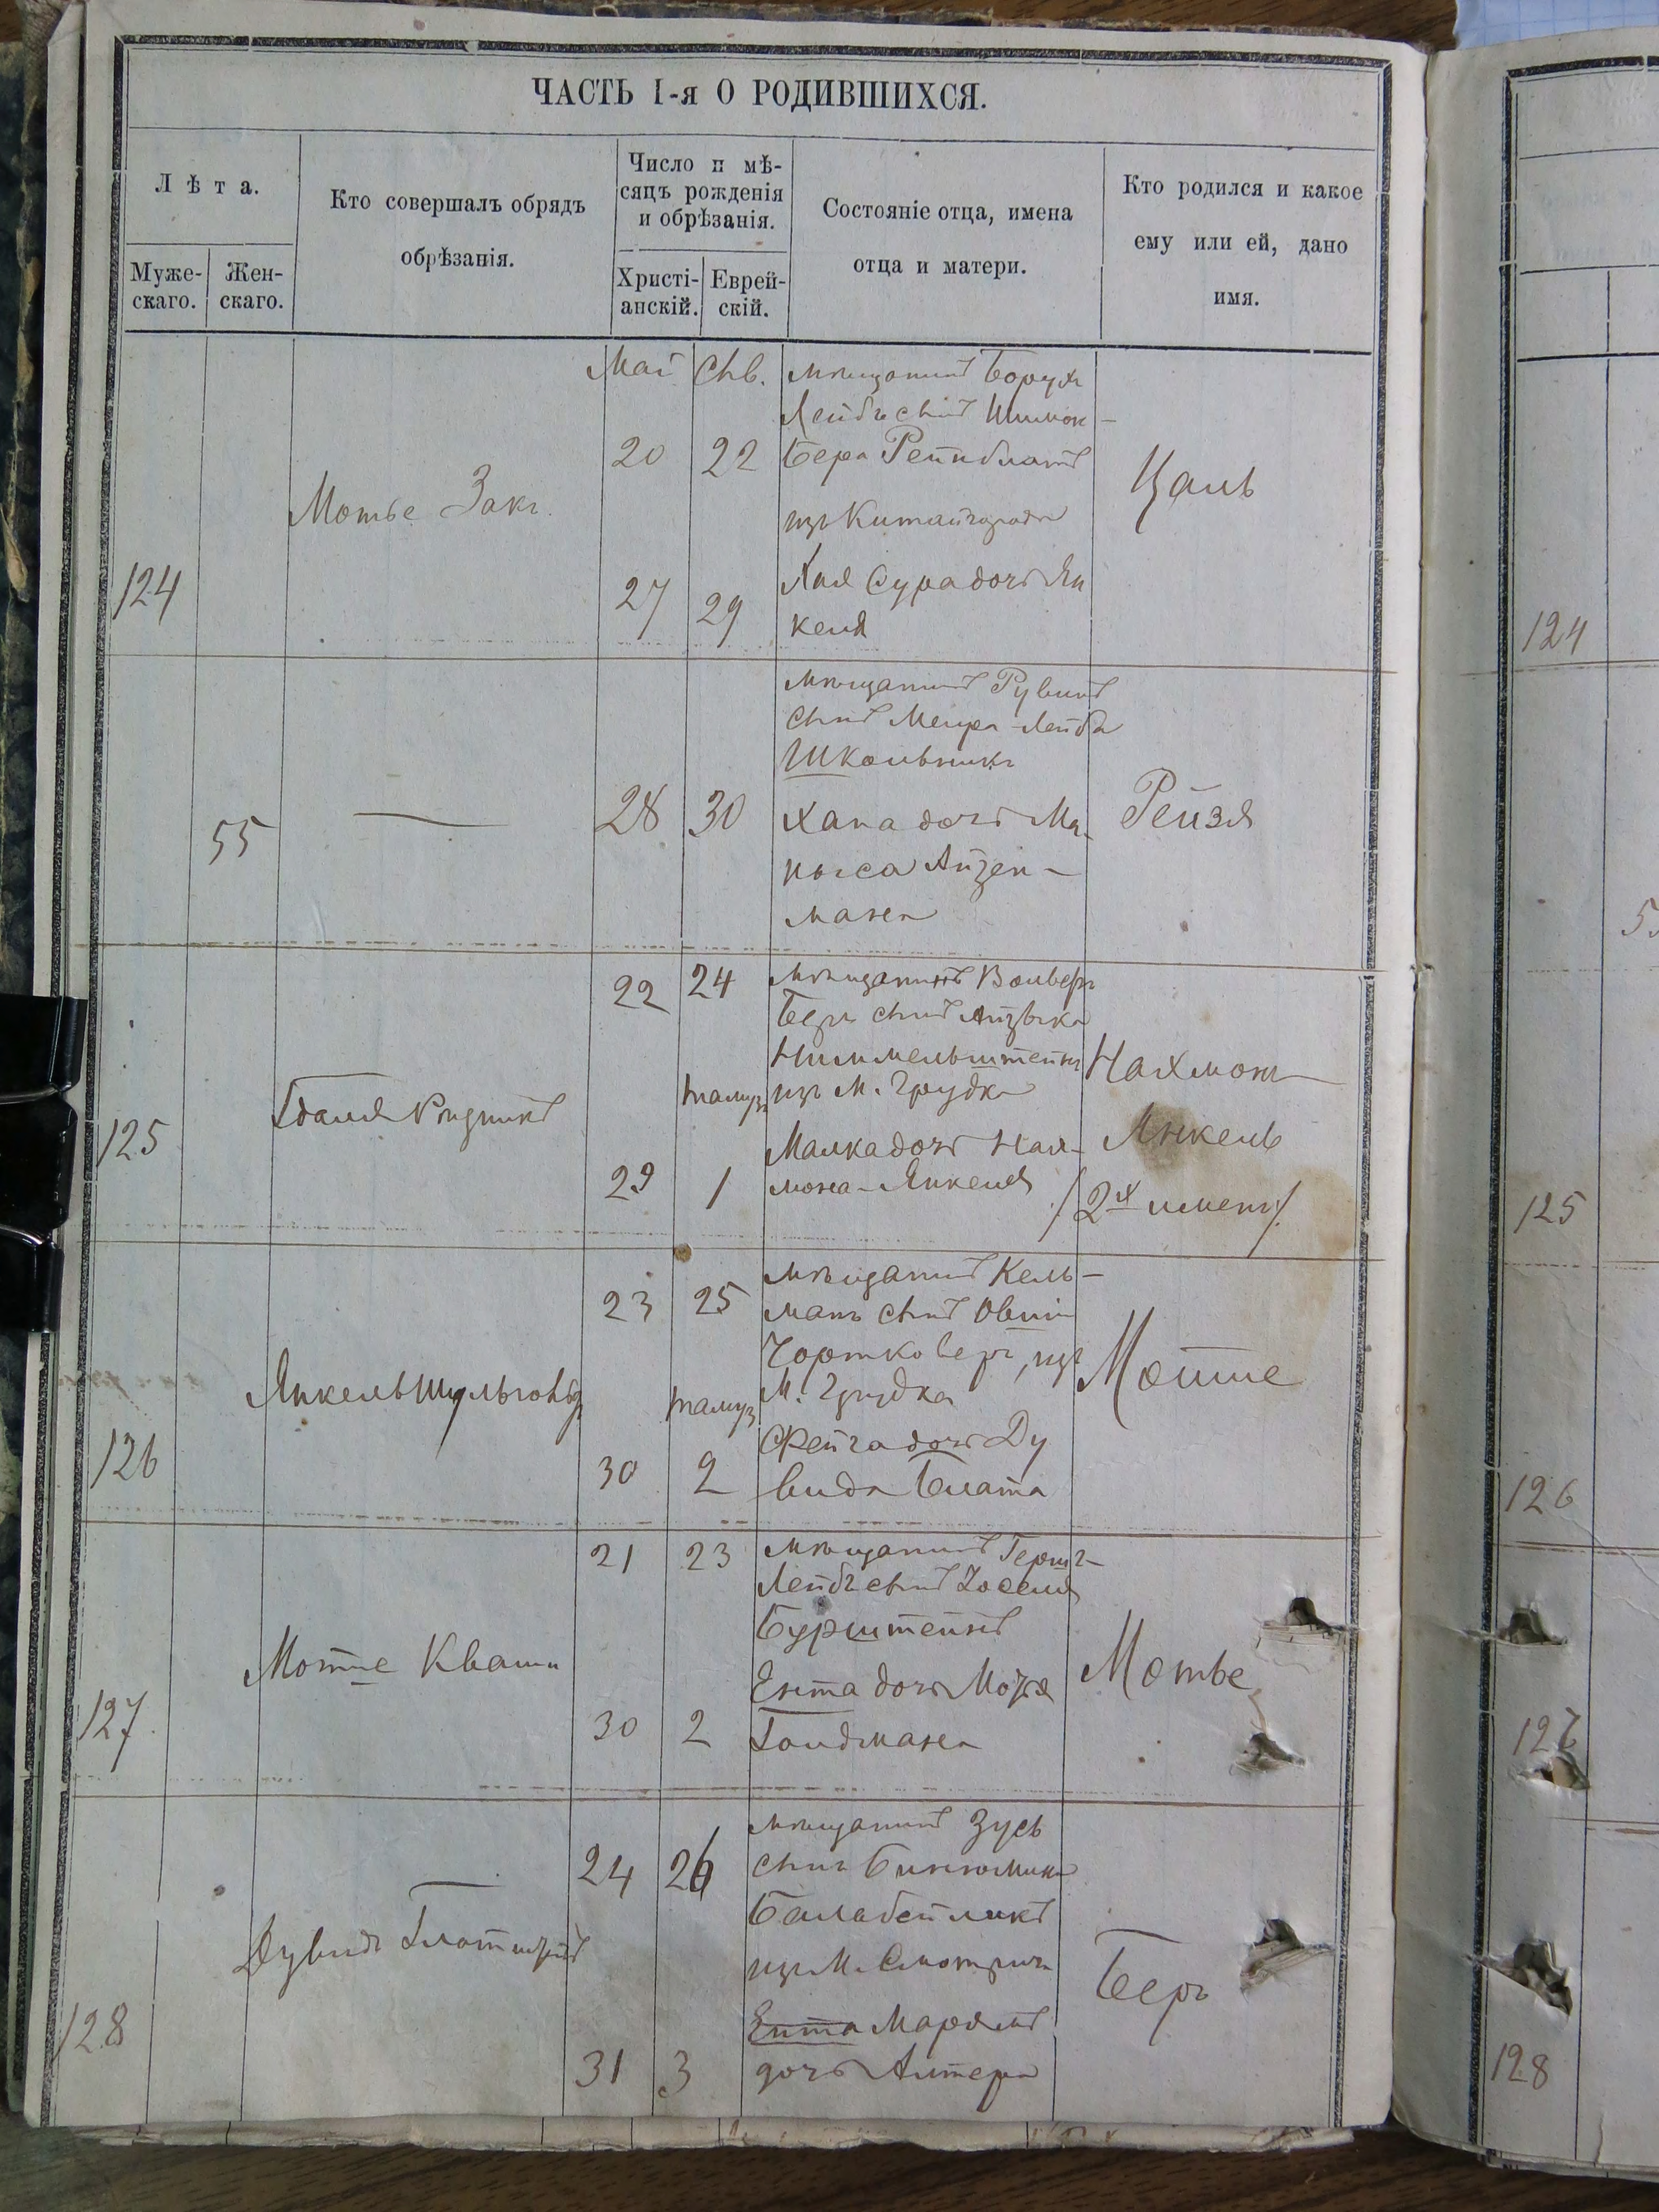 ЧАСТЬ I-я О РОДИВШИХСЯ.
Лѣта.
Муже-
скаго.
Жен-
скаго.
Кто совершалъ обрядъ
обрѣзанія.
Число и мѣ-
сяцъ рожденія
и обрѣзанія.
Христі-
анскій.
Еврей-
скій.
Состояніе отца, имена
отца и матери.
Кто родился и какое
ему или ей, дано
имя.
124
Мотье Закъ
Май
20
27
Сив.
22
29
мѣщанинъ Борухъ
Лейбъ сынъ Шимон-
Бера Рейнблатъ
изъ Китайгорода
Хая Сура дочь Ян
келя
Цаль
55
28
30
мѣщанинъ Рувинъ
сынъ Меира-Лейба
Школьникъ
Хана дочь Ма-
ныса Айзен-
мана
Рейзя
125
Гдаля
22
29
24
тамузъ
1
мѣщанинъ Вольфъ
Беръ сынъ Айзыка
изъ м. Грудка
Малка дочь Нах-
мона-Янкеля
Нахмонъ
Янкель
/2х именъ/
126
Янкель
23
30
25
тамуз
2
мѣщанинъ Кель-
манъ сынъ
Чортковеръ, изъ
м. Грудка
Фейга дочь Ду
вида Блата
Мойше
127
Мотье Кваша
21
30
23
2
мѣщанинъ Гершъ-
Лейбъ сынъ Іоселя
Бурштейнъ
Ента дочь
Голдмана
Мотье
128
Дувидъ
24
31
26
3
мѣщанинъ Зусь
сынъ Бинюмина
Балабейликъ
изъ м. Смотрича
Ента Марямъ
дочь Алтера
Беръ
124
125
126
127
128